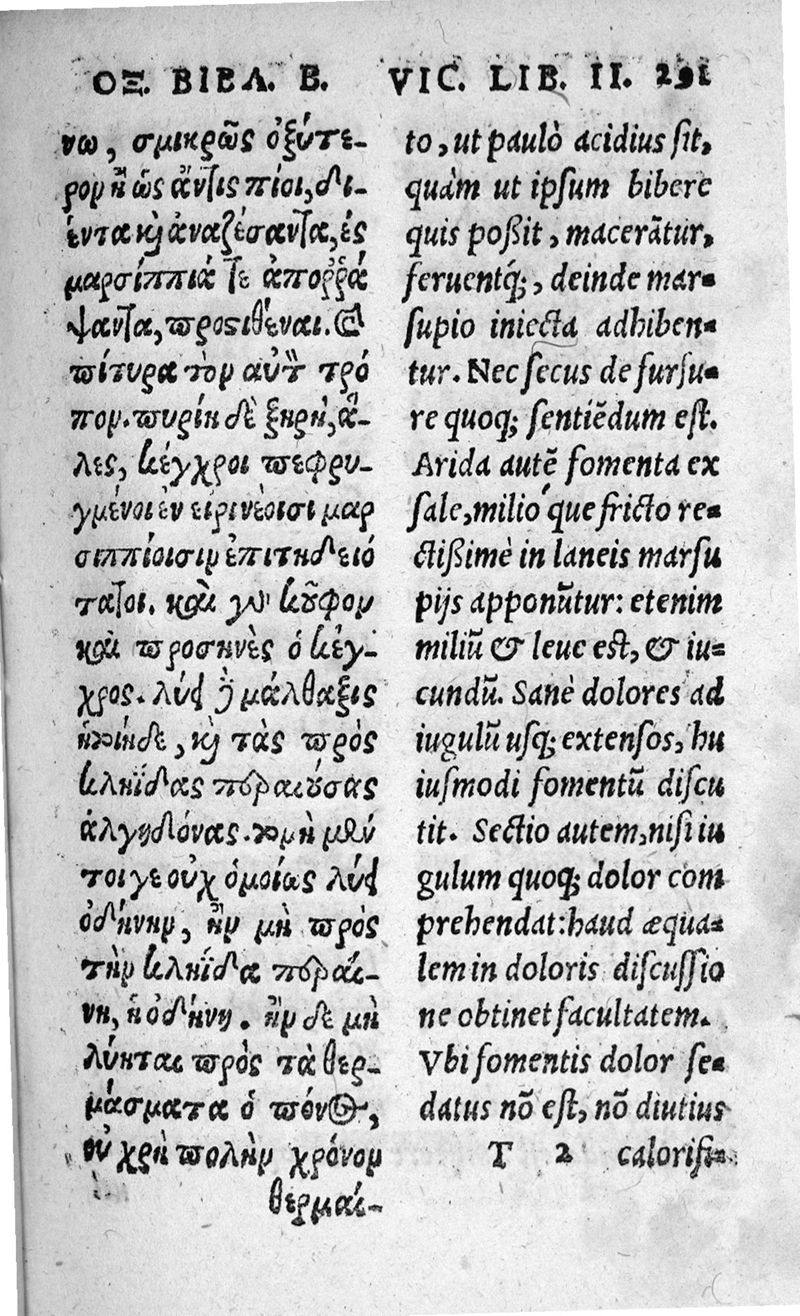 ΟΞ. ΒΙΒΛ. Β.
νω, σμικρῶς ὀξύτε-
ρον ἢ ὡς ἄν τις πίοι, δι-
έντα κỳ ἀναζέσαντα, ἐς
μαρσίππιά τε ἀποῤῥά
ψαντα, προστιθέναι. Καὶ
πίτυρα τὸν αὐτὸν τρό
πον. πυρίη δὲ ξηρὴ, ἅ-
λες, κέγχροι πεφρυ-
γμένοι ἐν εἰρινέοισι μαρ
σιππίοισιν ἐπιτηδειό
τατοι. καὶ γὰρ κοῦφον
καὶ προσηνὲς ὁ κέγ-
χρος. λύει δὲ μάλθαξις
ἡ τοιήδε, καὶ τὰς πρὸς
κληῖδας περαιούσας
ἀλγηδόνας. τομὴ μέν
τοι γε οὐχ ὁμοίως λύει
ὀδύνην, ἢν μὴ πρὸς
τὴν κληῖδα περαί-
νη, ἡ ὀδύνη. ἢν δὲ μὴ
λύηται πρὸς τὰ θερ-
μάσματα ὁ πόνος,
οὐ χρὴ πολὴν χρόνον
θερμαί-
VIC. LIB. II. 291
to, ut paulò acidius sit,
quàm ut ipsum bibere
quis poßit, macerātur,
feruentq́;, deinde mar-
supio iniecta adhiben-
tur. Nec secus de fursu-
re quoq; sentiēdum est.
Arida autē fomenta ex
sale, milio´que fricto re-
ctißimè in laneis marsu
pijs apponūtur: etenim
miliū & leue est, & iu-
cundū. Sanè dolores ad
iugulū usq; extensos, hu
iusmodi fomentū discu
tit. Sectio autem, nisi iu
gulum quoq; dolor com
prehendat: haud æqua-
lem in doloris discussio
ne obtinet facultatem.
Vbi fomentis dolor se-
datus nō est, nō diutius
T 2 calorifi-